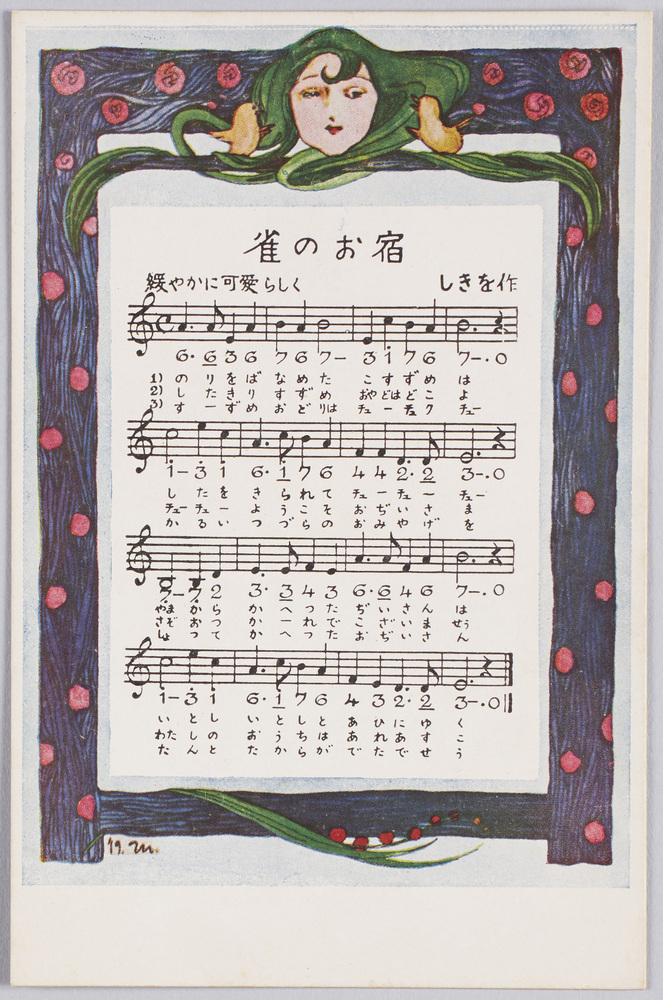 雀のお宿
緩やかに可愛らしく しきを作
6· 6 3 6 7 6 7– 3 1 7 6 7–·0
1) のりをば なめた こすずめは
2) したきり すずめ おやどはどこよ
3) すーずめ おどりは チューチュクチュー
1– 3 1 6· 1 7 6 4 4 2· 2 3–·0
したを きられて チューチューチュー
チューチュー ようこそ おぢいさま
かるい つづらの おみやげを
7– 7 2 3· 3 4 3 6· 6 4 6 7–·0
やまから かへつた ぢいさんは
さぞおつかれで ございませう
しょつて かへつた おぢいさん
1– 3 1 6· 1 7 6 4 3 2· 2 3–·0
いとし いとしと あひにゆく
わたしの おうちは あれあすこ
たんと おたからが でたでせう